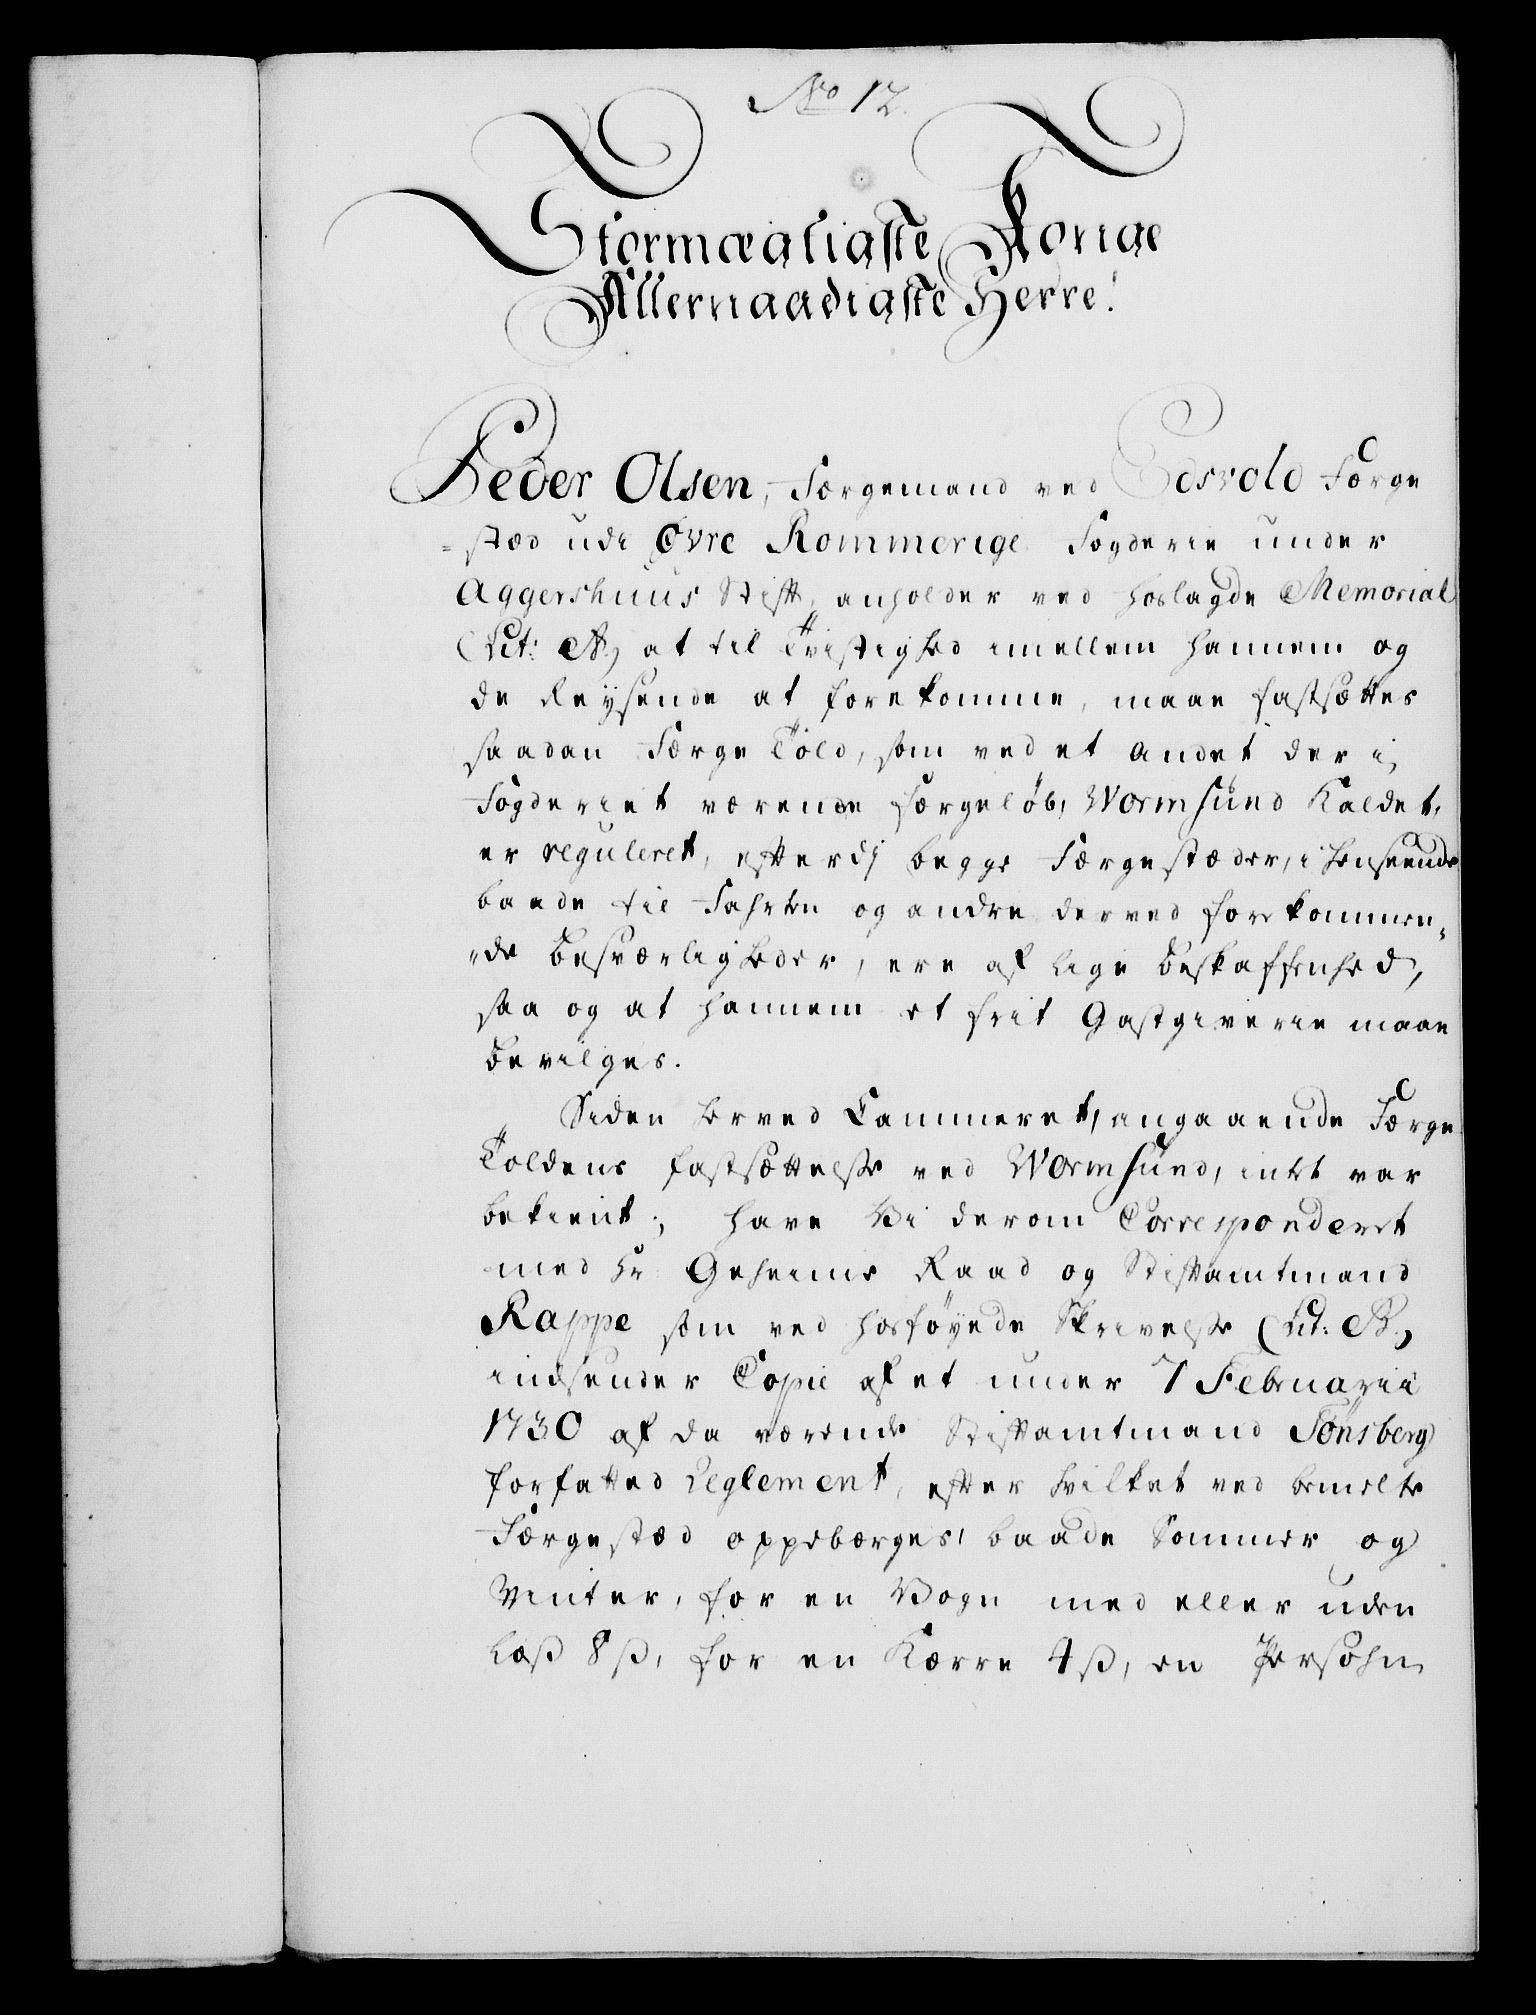 No 12.
Stormægtigste Konge
Allernaadigste Herre!
Peder Olsen, Færgemand ved Edsvold Færge
=stæd udi Øvre Rommerige Fogderie under
Aggershuus Stift, anholder ved hoslagde Memorial
(Lit: A) at til Tvistighed imellem hannem og
de Reysende at forekomme, maae fastsættes
saadan Færge Told, som ved et andet der i
Fogderiet værende færgeløb, Wormsund kaldet,
er reguleret, efterdj begge Færgestæder, i henseende
baade til Fahrten og andre derved forekommen-
-de besværligheder, ere af lige beskaffenhed,
saa og at hannem et frit Gastgiverie maae
bevilges.
Siden herved Cammeret, angaaende Færge
Toldens fastsættelse ved Wormsund, intet var
bekient; have Vi derom Corresponderet
med Hr Geheime Raad og Stiftamtmand
Rappe som ved hosføyede Skrivelse (Lit: B.)
indsender Copie af et under 7 Februarii
1730 af da værende Stiftamtmand Tønsberg
forfatted Reglement, efter hvilket ved bemelte
Færgestæd oppebærges, baade Sommer og
Vinter, for en Vogn med eller uden
Læs 8 ß, for en Kærre 4 ß, en Persohn